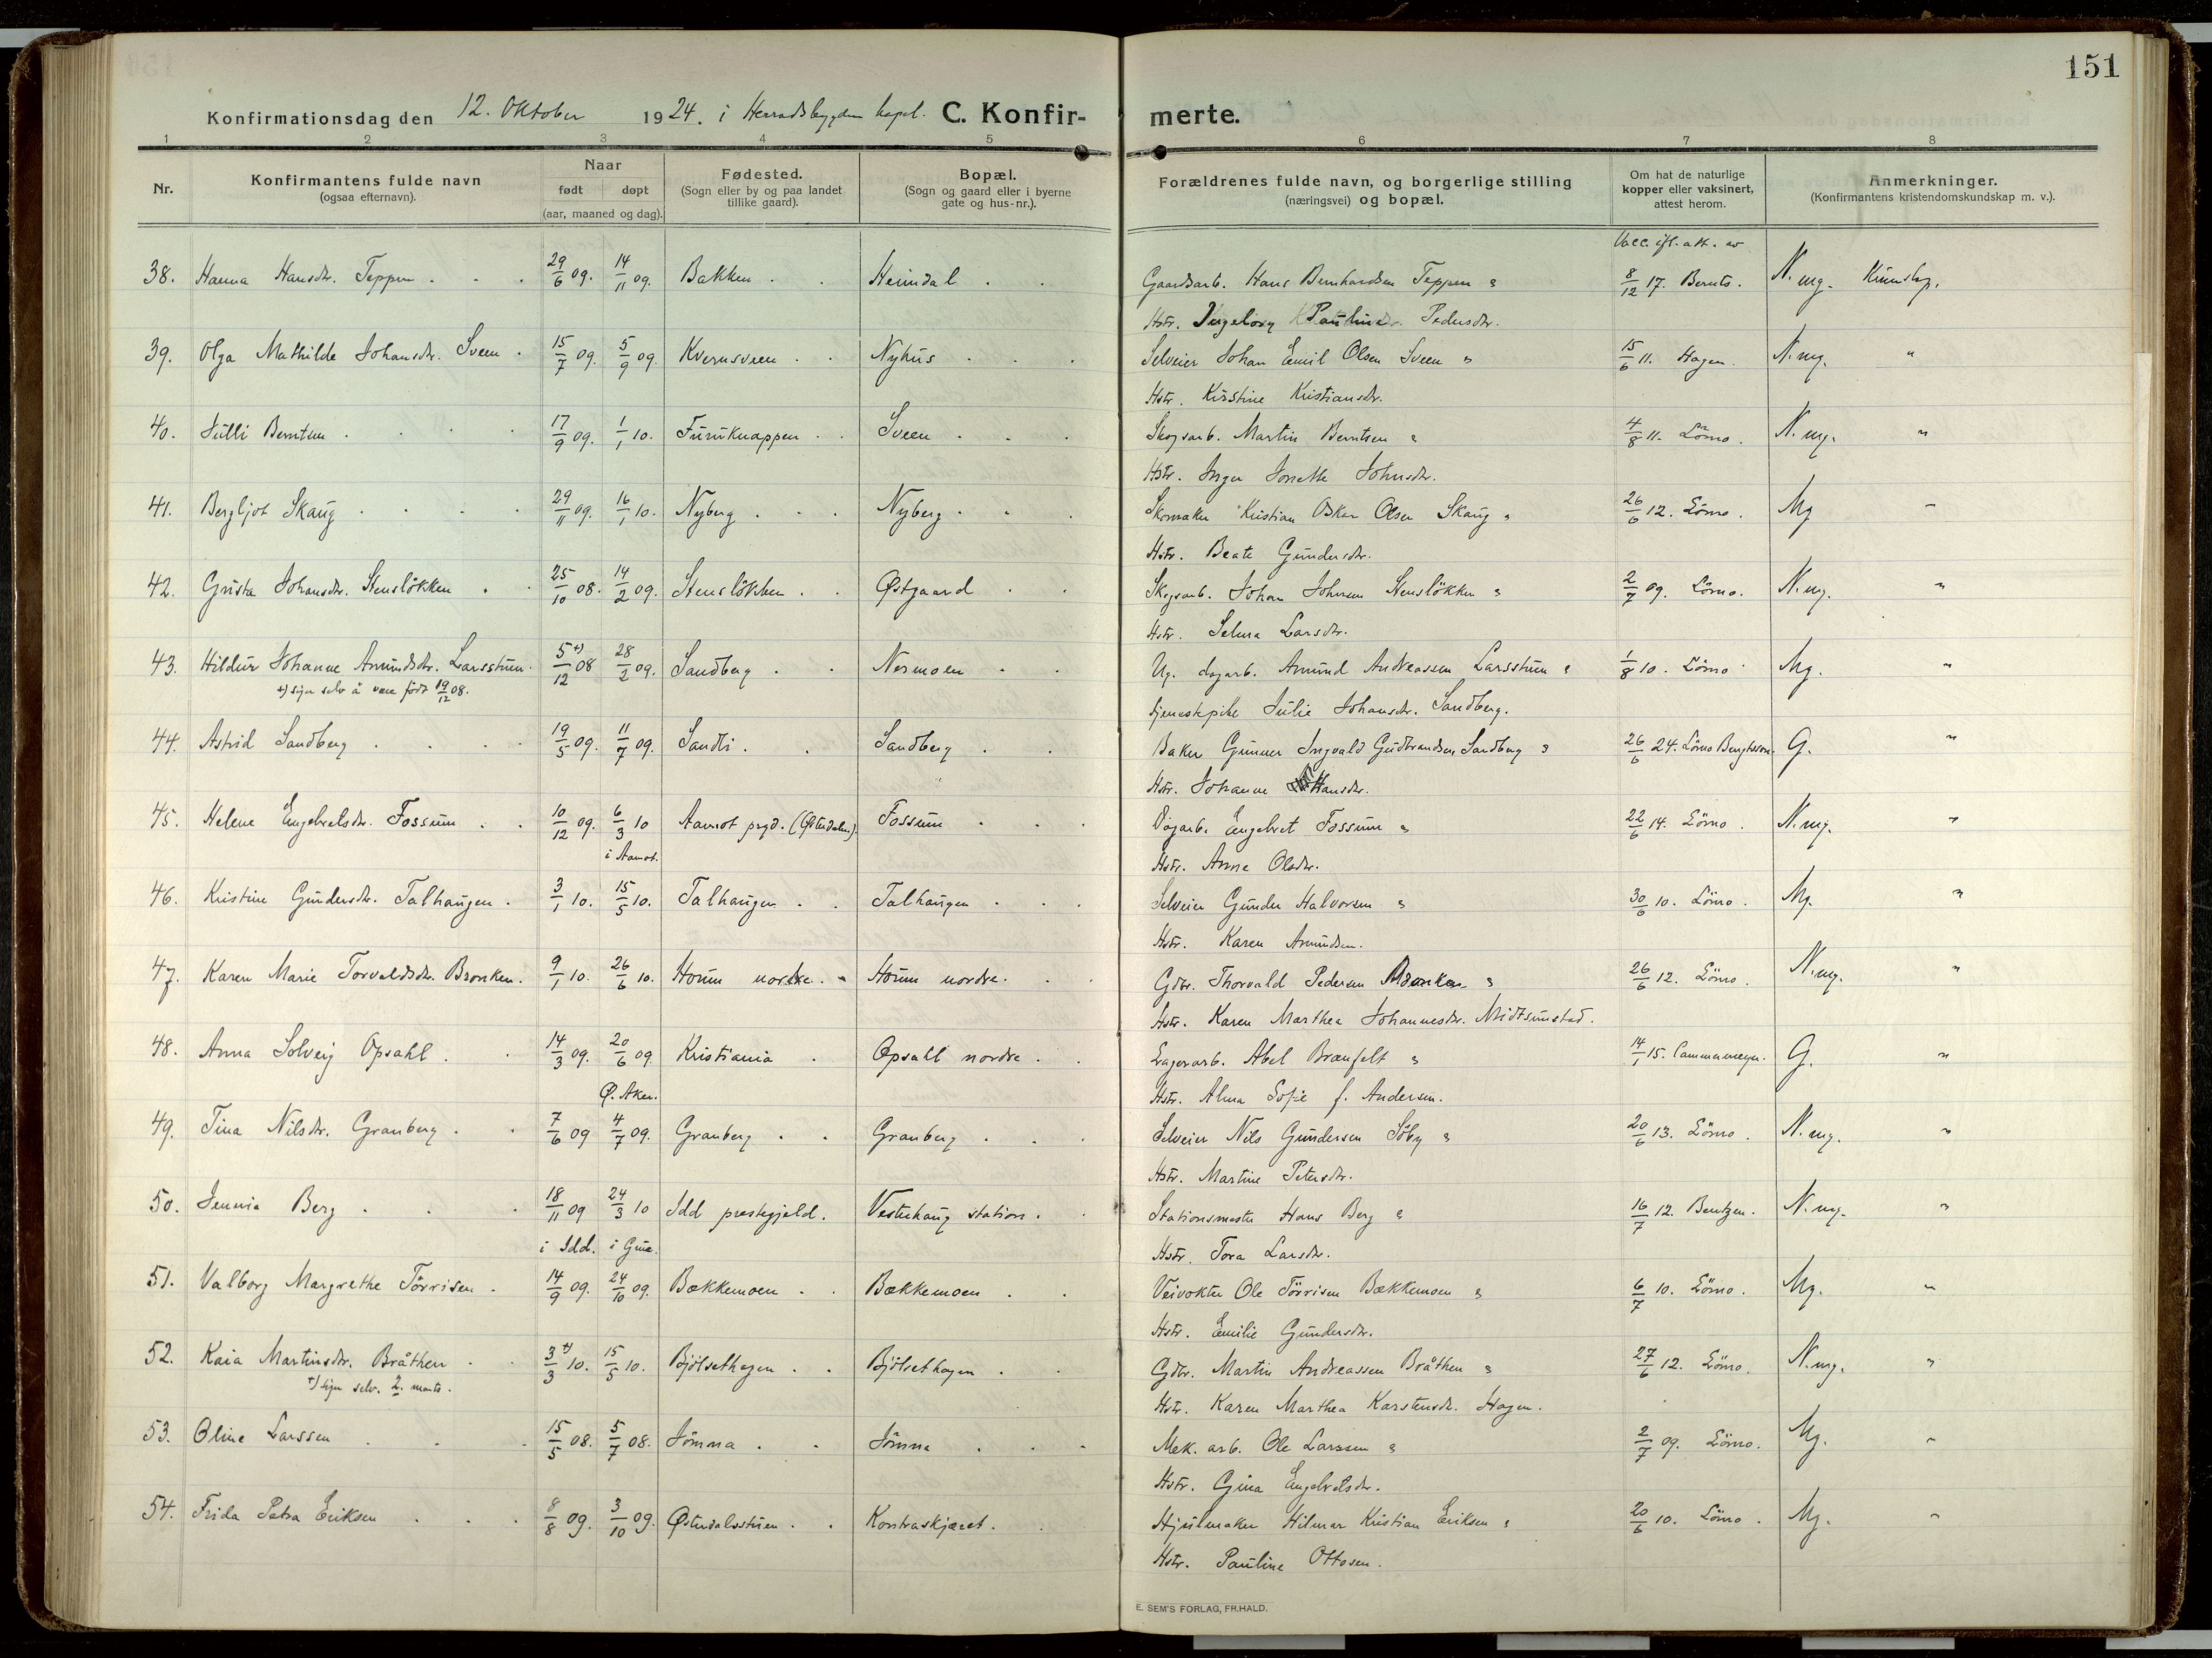 151
Konfirmationsdag den 12. Oktober 1924. i Herradsbygden kapel. C. Konfir- merte.
1 2 3 4 5 6 7 8
Nr.
Konfirmantens fulde navn
(ogsaa efternavn).
Naar
født døpt
(aar, maaned og dag).
Fødested.
(Sogn eller by og paa landet
tillike gaard).
Bopæl.
(Sogn og gaard eller i byerne
gate og hus-nr.).
Forældrenes fulde navn, og borgerlige stilling
(næringsvei) og bopæl.
Om hat de naturlige
kopper eller vaksinert,
attest herom.
Anmerkninger.
(Konfirmantens kristendomskundskap m. v.).
Vacc. ifl. att. av
38. Hanna Hansdtr. Teppen 29/6 09. 14/11 09. Bakken Heimdal Gaardsarb. Hans Bernhardsen Teppen " 8/12 17. Bernts. N. mg. Kunnskap.
Hstr. Ingeborg Pauline Pedersdtr.
39. Olga Mathilde Johansdtr. Sveen 15/7 09. 5/9 09. Kvernsveen Nyhus Selveier Johan Emil Olsen Sveen " 15/6 11. Hagen. N. mg. "
Hstr. Kirstine Kristiansdtr.
40. Julli Berntsen 17/9 09. 1/1 10. Furuknappen Sveen Skogsarb. Martin Berntsen " 4/8 11. Lömo. N. mg. "
Hstr. Inger Jonette Johnsdtr.
41. Bergljot Skaug 29/11 09. 16/1 10. Nyberg Nyberg Skomaker Kristian Oskar Olsen Skaug " 26/6 12. Lömo. Mg "
Hstr. Beate Gundersdtr.
42. Gusta Johansdtr. Stenslökken 25/10 08. 14/2 09. Stenslökken Østgaard Skogsarb. Johan Johnsen Stenslökken " 2/7 09. Lömo. N. mg. "
Hstr. Selma Larsdtr.
43. Hildur Johanne Amundsdtr. Larsstuen. 5/12 +) 08 28/2 09. Sandberg Nermoen Ug. dagarb. Amund Andreassen Larsstuen " 1/8 10. Lömo Mg. "
+) siger selv å være født 19/12 08.
tjenestepike Julie Johansdtr. Sandberg.
44. Astrid Sandberg 19/5 09. 11/7 09. Sandli. Sandberg Baker Gunner Ingvald Gudbrandsen Sandberg " 26/6 24. Lömo Bengtsson. G. "
Hstr. Johanne Hansdtr.
45. Helene Engebretsdtr. Fossum 10/12 09. 6/3 10 Aamot prgd. (Østerdalen) Fossum Dagarb. Engebret Fossum " 22/6 14. Lömo. N. mg. "
i Aamot.
Hstr. Anne Olsdtr.
46. Kristine Gundersdtr. Talhaugen. 3/1 10. 15/5 10. Talhaugen Talhaugen Selveier Gunder Halvorsen " 30/6 10. Lömo. Mg. "
Hstr. Karen Amundsen.
47. Karen Marie Torvaldsdtr. Bronken. 9/1 10. 26/6 10. Horum nordre. Horum nordre. Gdbr. Thorvald Pedersen Bronken " 26/6 12. Lömo. N. mg. "
Hstr. Karen Marthea Johannesdtr. Midtsundstad.
48. Anna Solveig Opsahl 14/3 09. 20/6 09 Kristiania Opsahl nordre Lagerarb. Abel Branfelt " 14/1 15. Cammameyer. G. "
Ø. Aker.
Hstr. Alma Sofie f. Andersen.
49. Tina Nilsdtr. Granberg 7/6 09 4/7 09. Granberg Granberg Selveier Nils Gundersen Söby " 20/6 13. Lömo. N. mg. "
Hstr. Martine Petersdtr.
50. Jennia Berg 18/11 09 24/3 10 Idd prestegjeld. Vesterhaug station. Stationsmester Hans Berg " 16/7 12. Bentzen. N. mg. "
i Idd. i Grue.
Hstr. Tora Larsdtr.
51. Valborg Margrethe Törrisen 14/9 09. 24/10 09. Bækkemoen Bækkemoen Veivokter Ole Törrisen Bækkemoen " 6/7 10. Lömo. Mg. "
Hstr. Emilie Gundersdtr.
52. Kaia Martinsdtr. Bråthen 3/3 +) 10. 15/5 10. Bjölsethagen Bjölsethagen Gdbr. Martin Andreassen Bråthen " 27/6 12. Lömo. N. mg. "
+) siger selv. 2. marts.
Hstr. Karen Marthea Karstensdtr. Hagen.
53. Oline Larssen 15/5 08. 5/7 08. Jömna Jömna Mek. arb. Ole Larssen " 2/7 09. Lömo. Mg. "
Hstr. Gina Engebretsdtr.
54. Frida Petra Eriksen 8/8 09. 3/10 09. Østerdalsstuen Kontraskjæret. Hjulmaker Hilmar Kristian Eriksen " 20/6 10. Lömo. Mg. "
Hstr. Pauline Ottosen.
E. SEM'S FORLAG, FR.HALD.